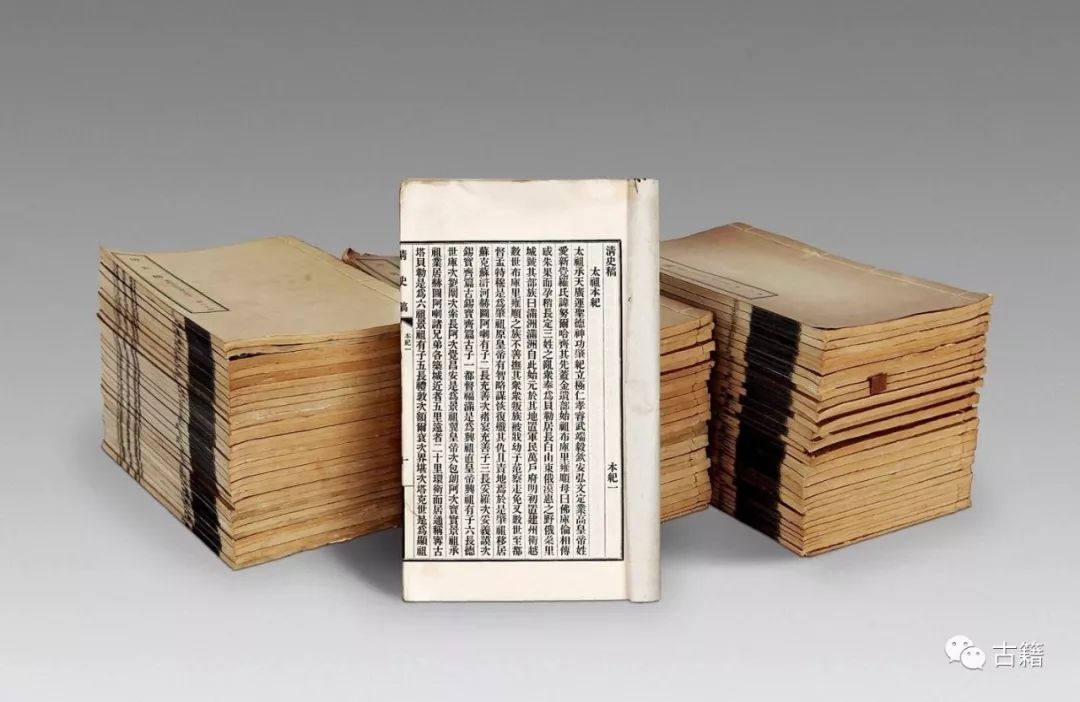 清史稿 本紀一
太祖本紀
太祖承天廣運聖德神功肇紀立極仁孝睿武端毅欽安弘文定業高皇帝姓
愛新覺羅氏諱努爾哈齊其先蓋金遺部始祖布庫里雍順母曰佛庫倫相傳
感朱果而孕稍長定三姓之亂衆奉爲貝勒居長白山東俄漠惠之野俄朶里
城號其部族曰滿洲滿洲自此始元於其地置軍民萬戶府明初置建州衛越
數世布庫里雍順之族不善撫其衆衆叛族被戕幼子范察走免又數世至都
督孟特穆是爲肇祖原皇帝有智略謀恢復殲其仇且責地焉於是肇祖移居
蘇克蘇滸河赫圖阿喇有子二長充善次褚宴充善子三長妥羅次妥義謨次
錫寶齊篇古錫寶齊篇古子一都督福滿是爲興祖直皇帝興祖有子六長德
世庫次劉闡次索長阿次覺昌安是爲景祖翼皇帝次包朗阿次寶實景祖承
祖業居赫圖阿喇諸兄弟各築城近者五里遠者二十里環衛而居通稱寧古
塔貝勒是爲六祖景祖有子五長禮敦次額爾袞次界堪次塔克世是爲顯祖
清史稿 本紀一
古籍